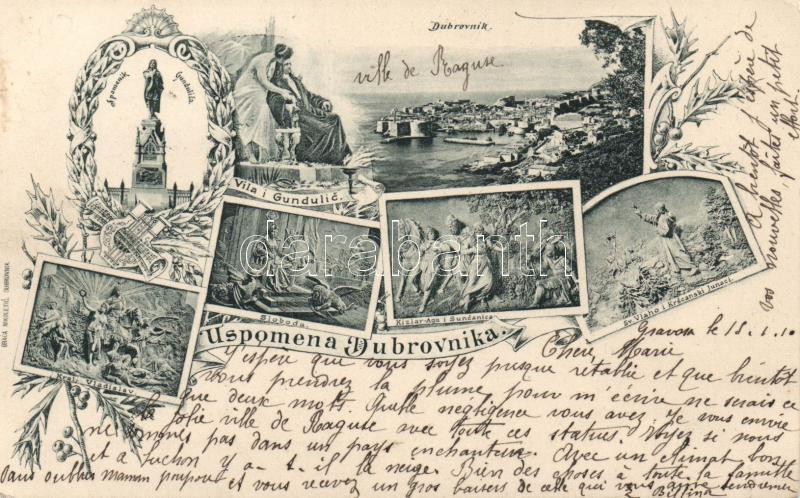 Dubrovnik.
Spomenik Gundulića.
ville de Raguse.
Vila i Gundulić.
Sloboda.
Kizlar-Aga i Sunčanica.
Sv Vlaho i Kršćanski Junaci.
Vladislav
Uspomena Dubrovnika.
BRAĆA NIKOLETIĆ, DUBROVNIK
darabanth
Gravosa le 18.1.10
Chère Marie
J'espère que vous soyez presque rétablie et que bientôt
vous prendrez la plume pour m'écrire ne serais ce
que deux mots. Quelle négligence vous avez. Je vous envoie
la jolie ville de Raguse avec toute ces statues. Voyez si nous
ne sommes pas dans un pays enchanteur. Avec un climat bon
et a Luchon y a-t-il la neige. Bien des choses à toute la famille
Sans oublier maman
et vous recevez un gros baisers de celle qui vous aime tendrement
A bientôt j'espère de
vos nouvelles, faites un petit
effort.